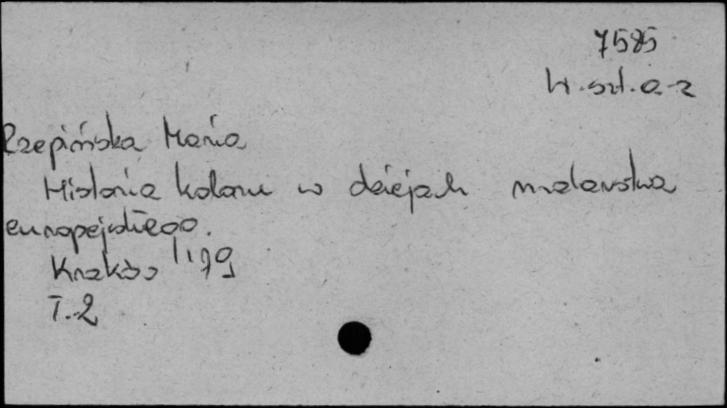 7585
H.szt.a-z
Rzepińska Maria
Historia koloru w dziejach malarstwa
europejskiego.
Kraków 1979
T.2